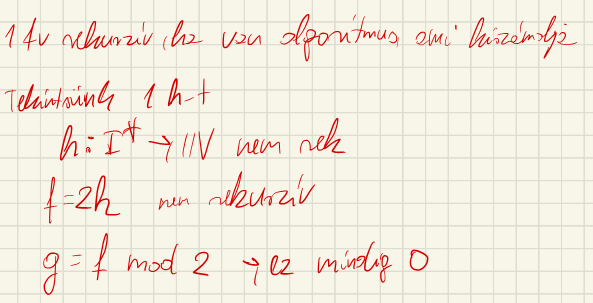 1 fv rekurzív, ha van algoritmus, ami kiszámolja
Tekintsünk 1 h-t
h: I* → ℕ nem rek
f = 2h nem rekurzív
g = f mod 2 → ez mindig 0